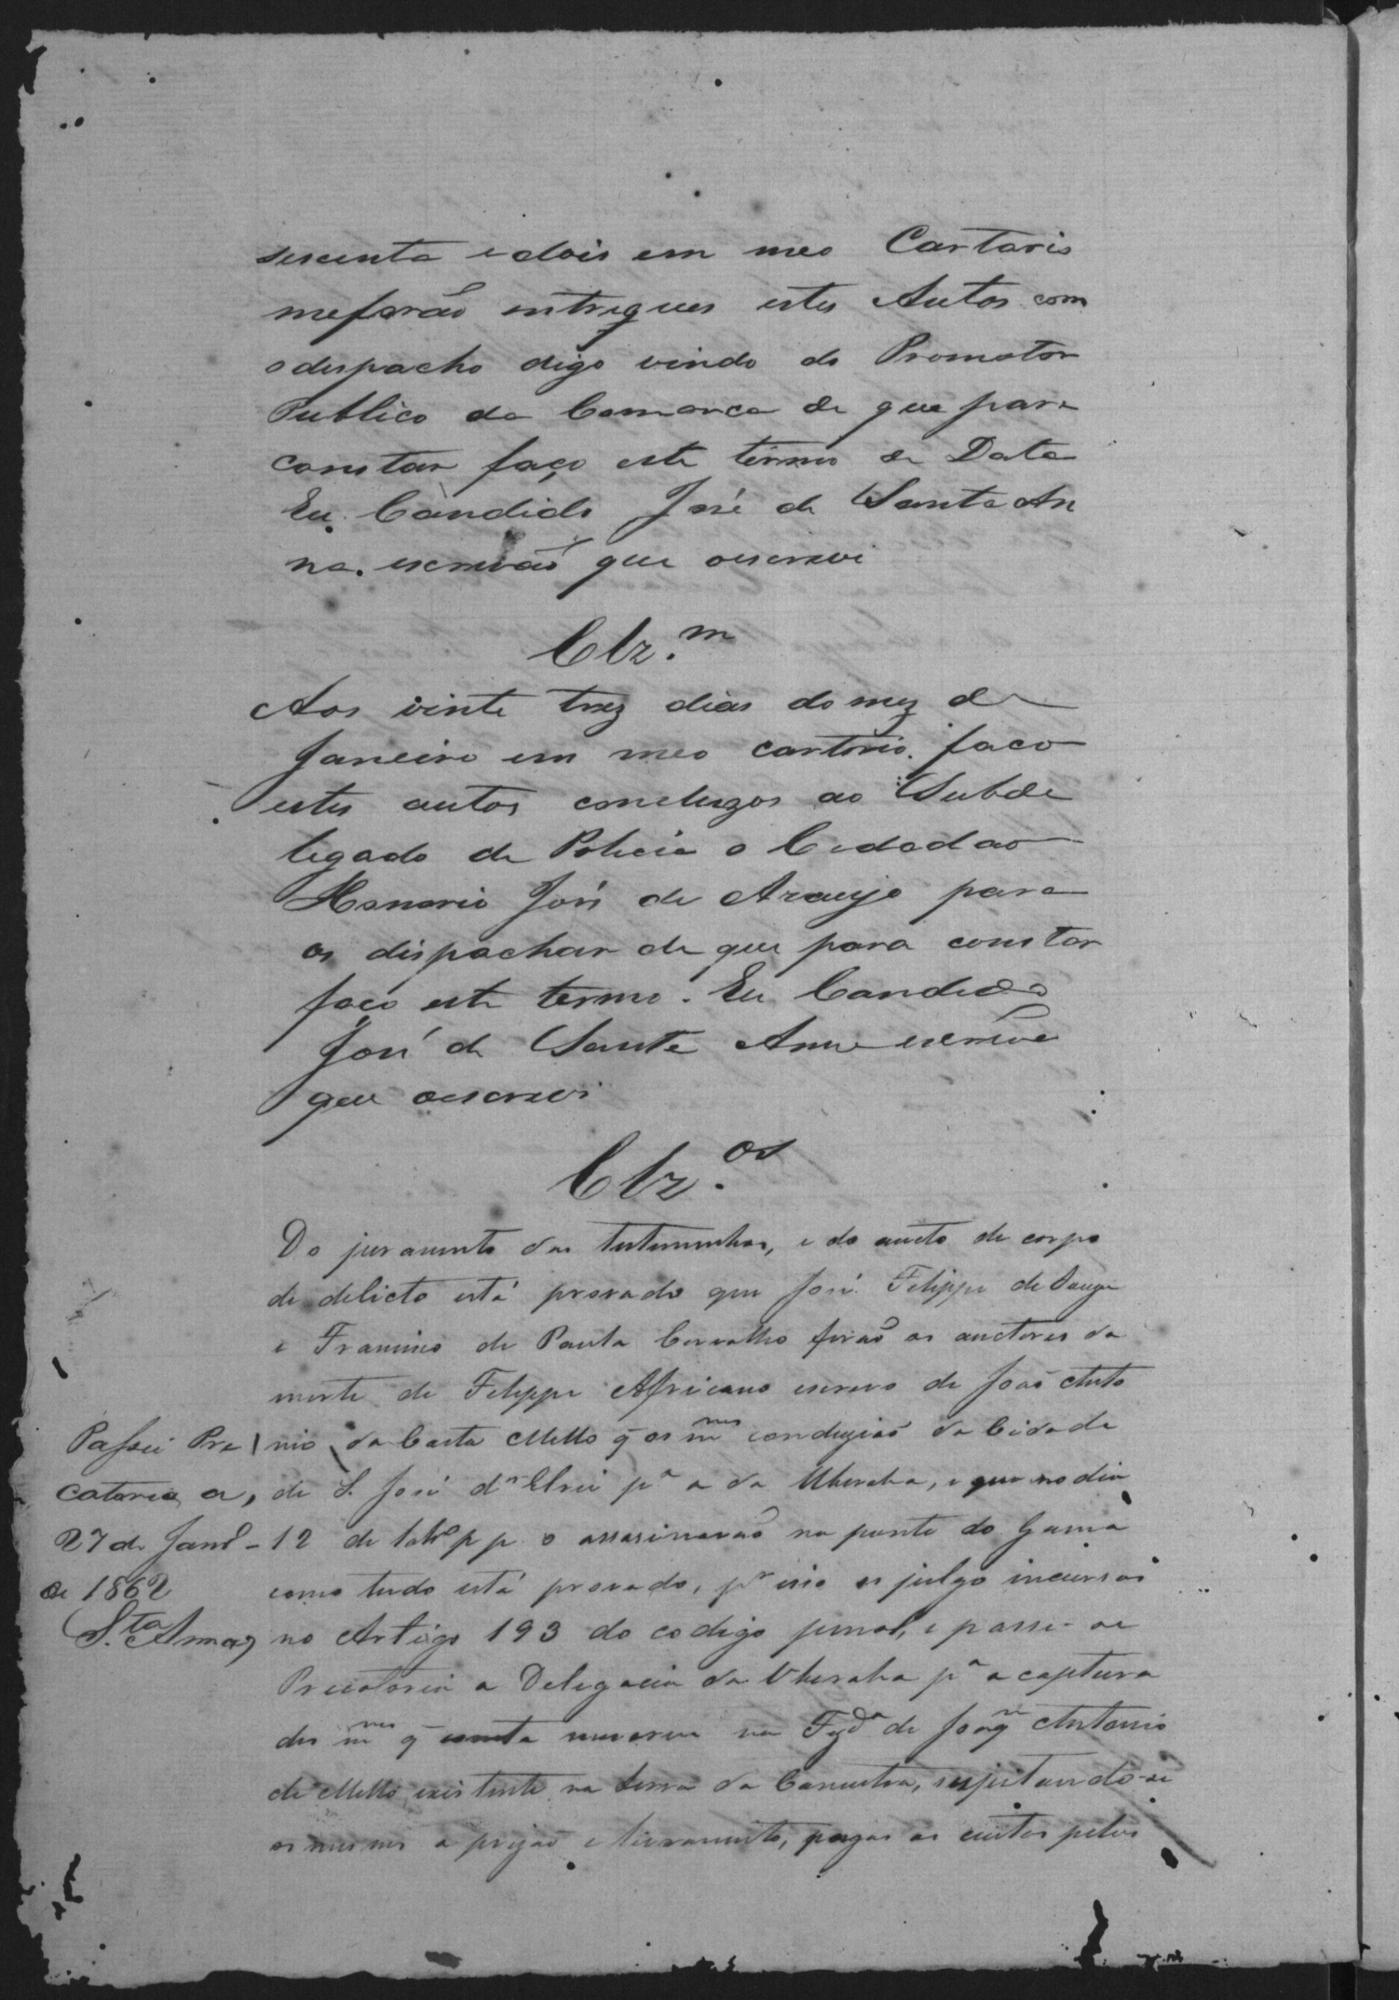 sesenta e dois em meo Cartorio
meforão entregues estes Autos com
o despacho digo vindo do Promotor
Publico da Comarca de que para
constar faço este termo de Data
Eu Candido José de Santa An
na. escrivaõ que oescrevi
Clz.m
Aos vinte trez dias do mez de
Janeiro em meo cartorio. faco
estes autos concluzos ao Subde
legado de Policia o Cidadao
Honorio José de Araujo para
os dispachar de que para constar
faço este termo. Eu Candido
José de Santa Anna escrivão
que oescrevi
Clz.os
Do juramento das testemunhas, e do aucto de corpo
de delicto está provado que José Felippe de
e Francisco de Paula Carvalho forão os auctores da
morte de Felippe Africano escravo de João Anto
nio da Costa Mello q̃ os mmos condusião da Cidade
de S. José d'El Rei pa a da Uberaba, e que no dia
12 de p p. o assasinarão na ponte do Gama
como tudo está provado, pr isso os julgo incursos
no Artigo 193 do codigo penal, e passe-se
Precatoria a Delegacia da Uberaba pa a captura
dos mmos q̃ consta na Fzda de Joaqm Antonio
de Mello existente na Serra da Canastra, sujeitando-se
os mesmos a prizão e livramento, pagas as custas pelos
Passei Pre
catoria a,
27 de Janro
de 1862
S.ta Anna